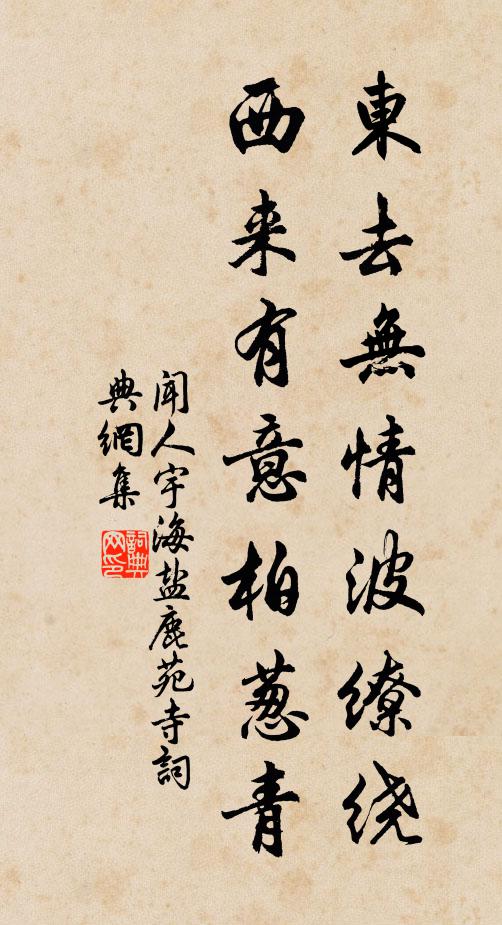 東去無情波缭绕
西来有意柏葱青
闻人宇海盐鹿苑寺詞
典網集
詞典網印